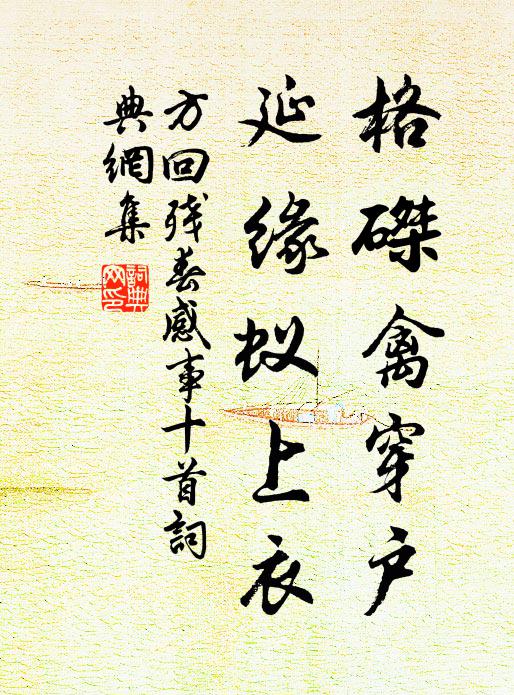 格磔禽穿户
延缘蚁上衣
方回残春感事十首詞
典網集
詞典
网印